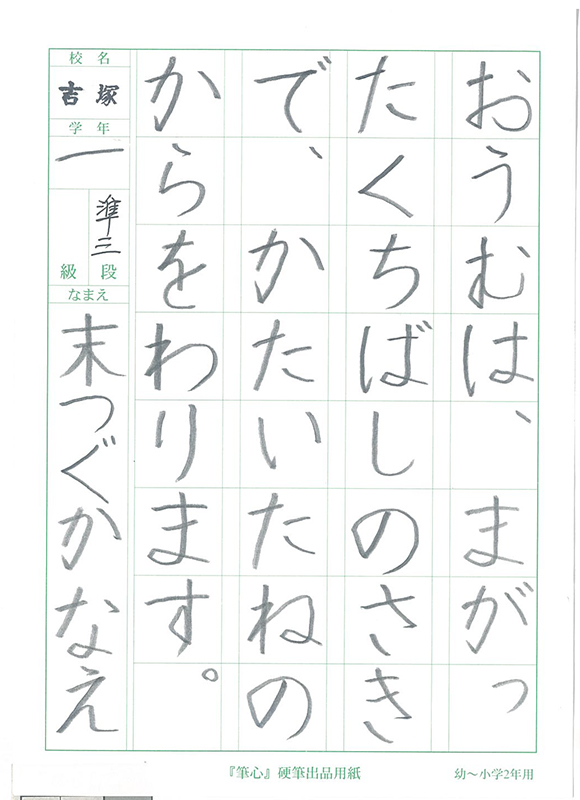 おうむは、まがっ
たくちばしのさき
で、かたいたねの
からをわります。
校名
吉塚
学年
一
準三
級 段
なまえ
末つぐかなえ
『筆心』硬筆出品用紙
幼～小学2年用